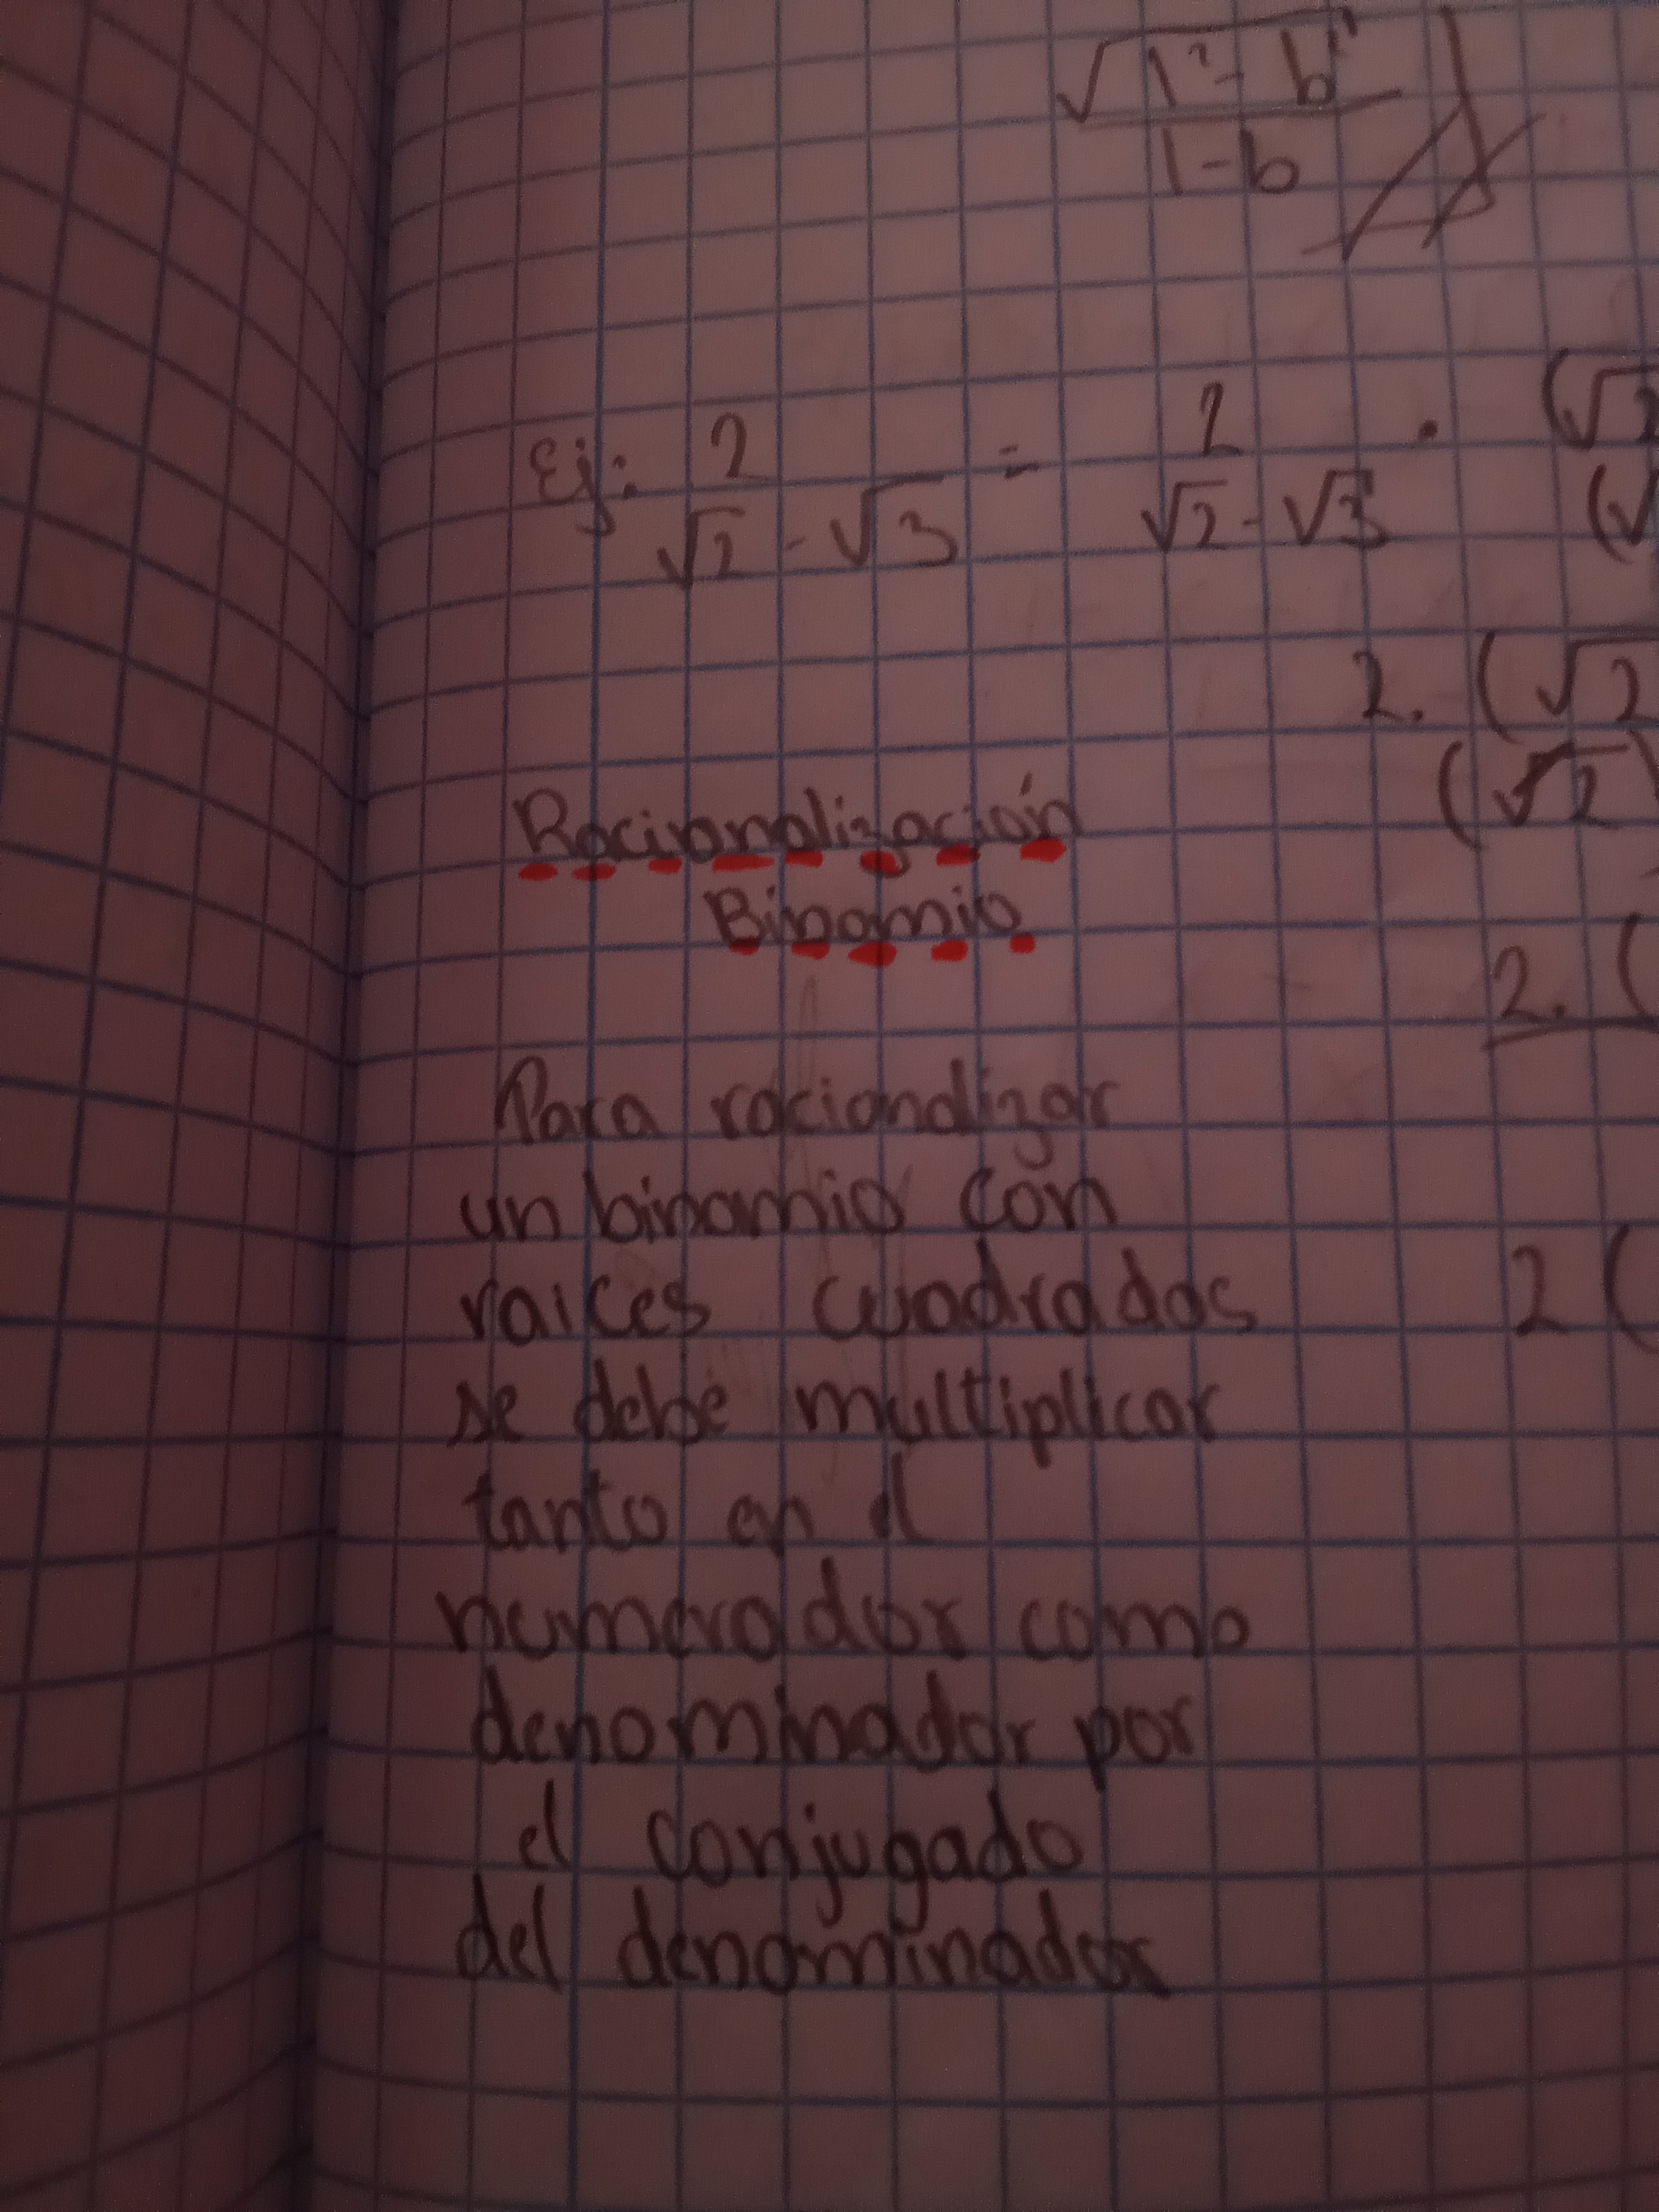 √1² - b²
1 - b
Ej: 2 = 2 · (√2
√2 - √3 √2 - √3 (√
2. (√2
(√2)
Racionalización
Binomio
2. (
Para racionalizar
un binomio con
raices cuadradas
2 (
se debe multiplicar
tanto en el
numerador como
denominador por
el conjugado
del denominador